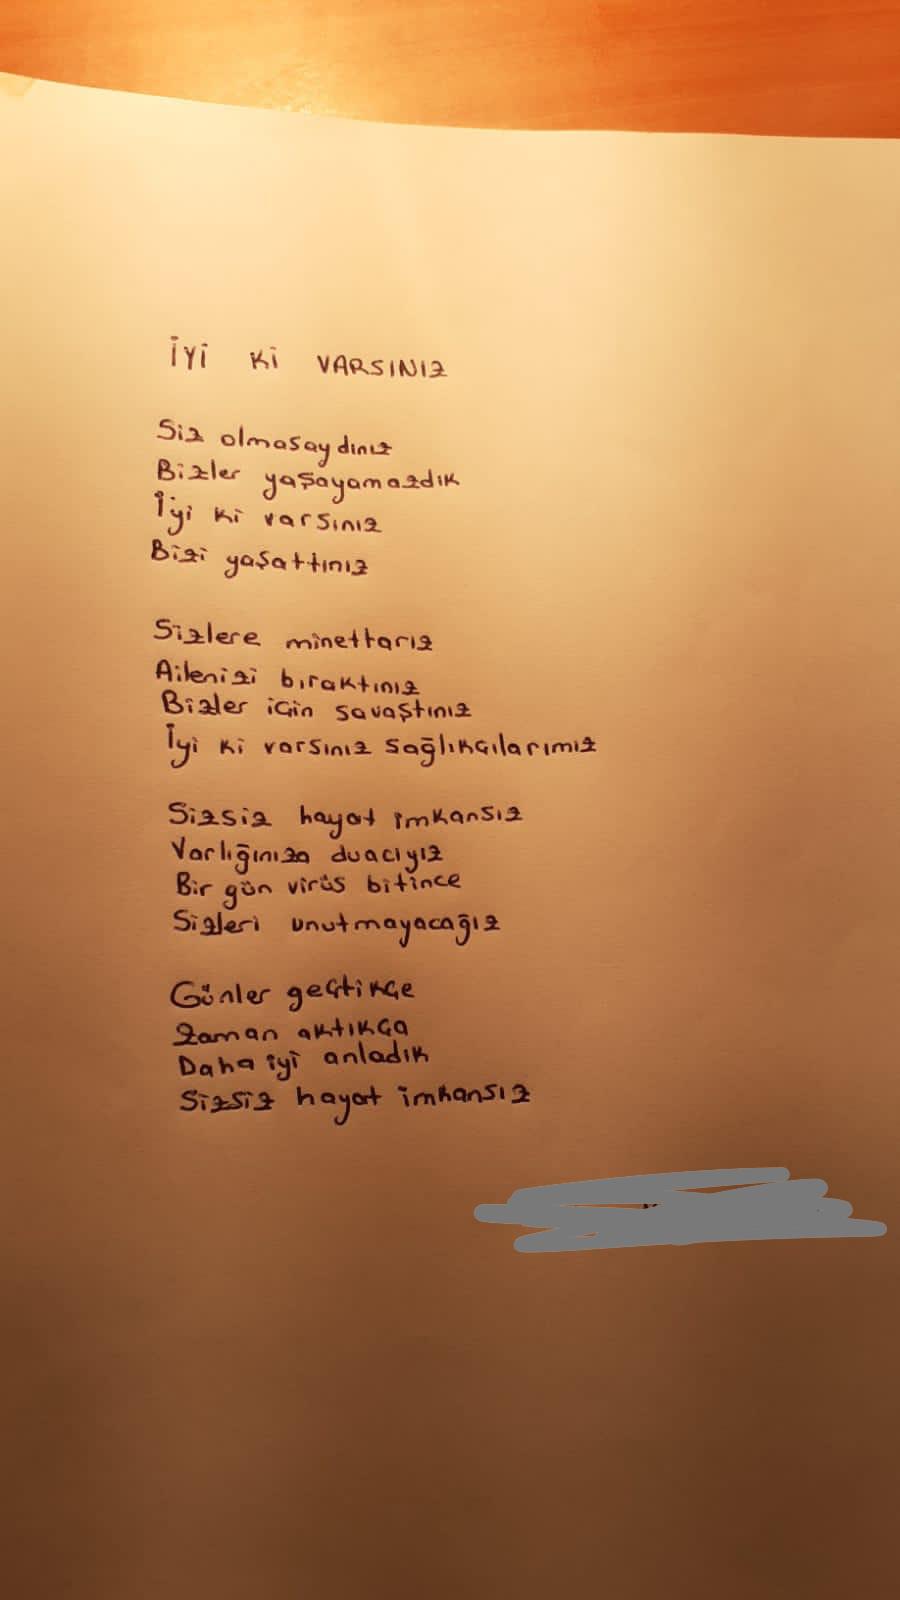 İyi Kİ VARSINIZ
Siz olmasaydınız
Bizler yaşayamazdık
İyi ki varsınız
Bizi yaşattınız
Sizlere minettarız
Ailenizi bıraktınız
Bizler için savaştınız
İyi ki varsınız sağlıkçılarımız
Sizsiz hayat imkansız
Varlığınıza duaciyız
Bir gün virüs bitince
Sizleri unutmayacağız
Günler geçtikçe
Zaman aktıkça
Daha iyi anladık
Sizsiz hayat imkansız